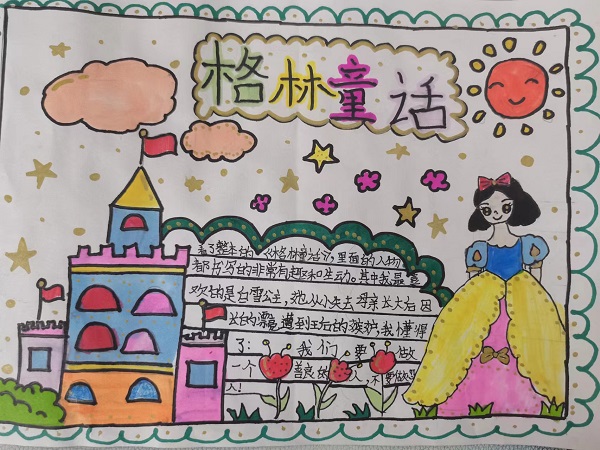 格林童话
看了整本的《格林童话》，里面的人物
都书写的非常有趣和生动。其中我最喜
欢的是白雪公主，她从小失去母亲长大后因
长的漂亮遭到王后的嫉妒，我懂得
了：我们要做
一个善良的人，不要做恶
人！